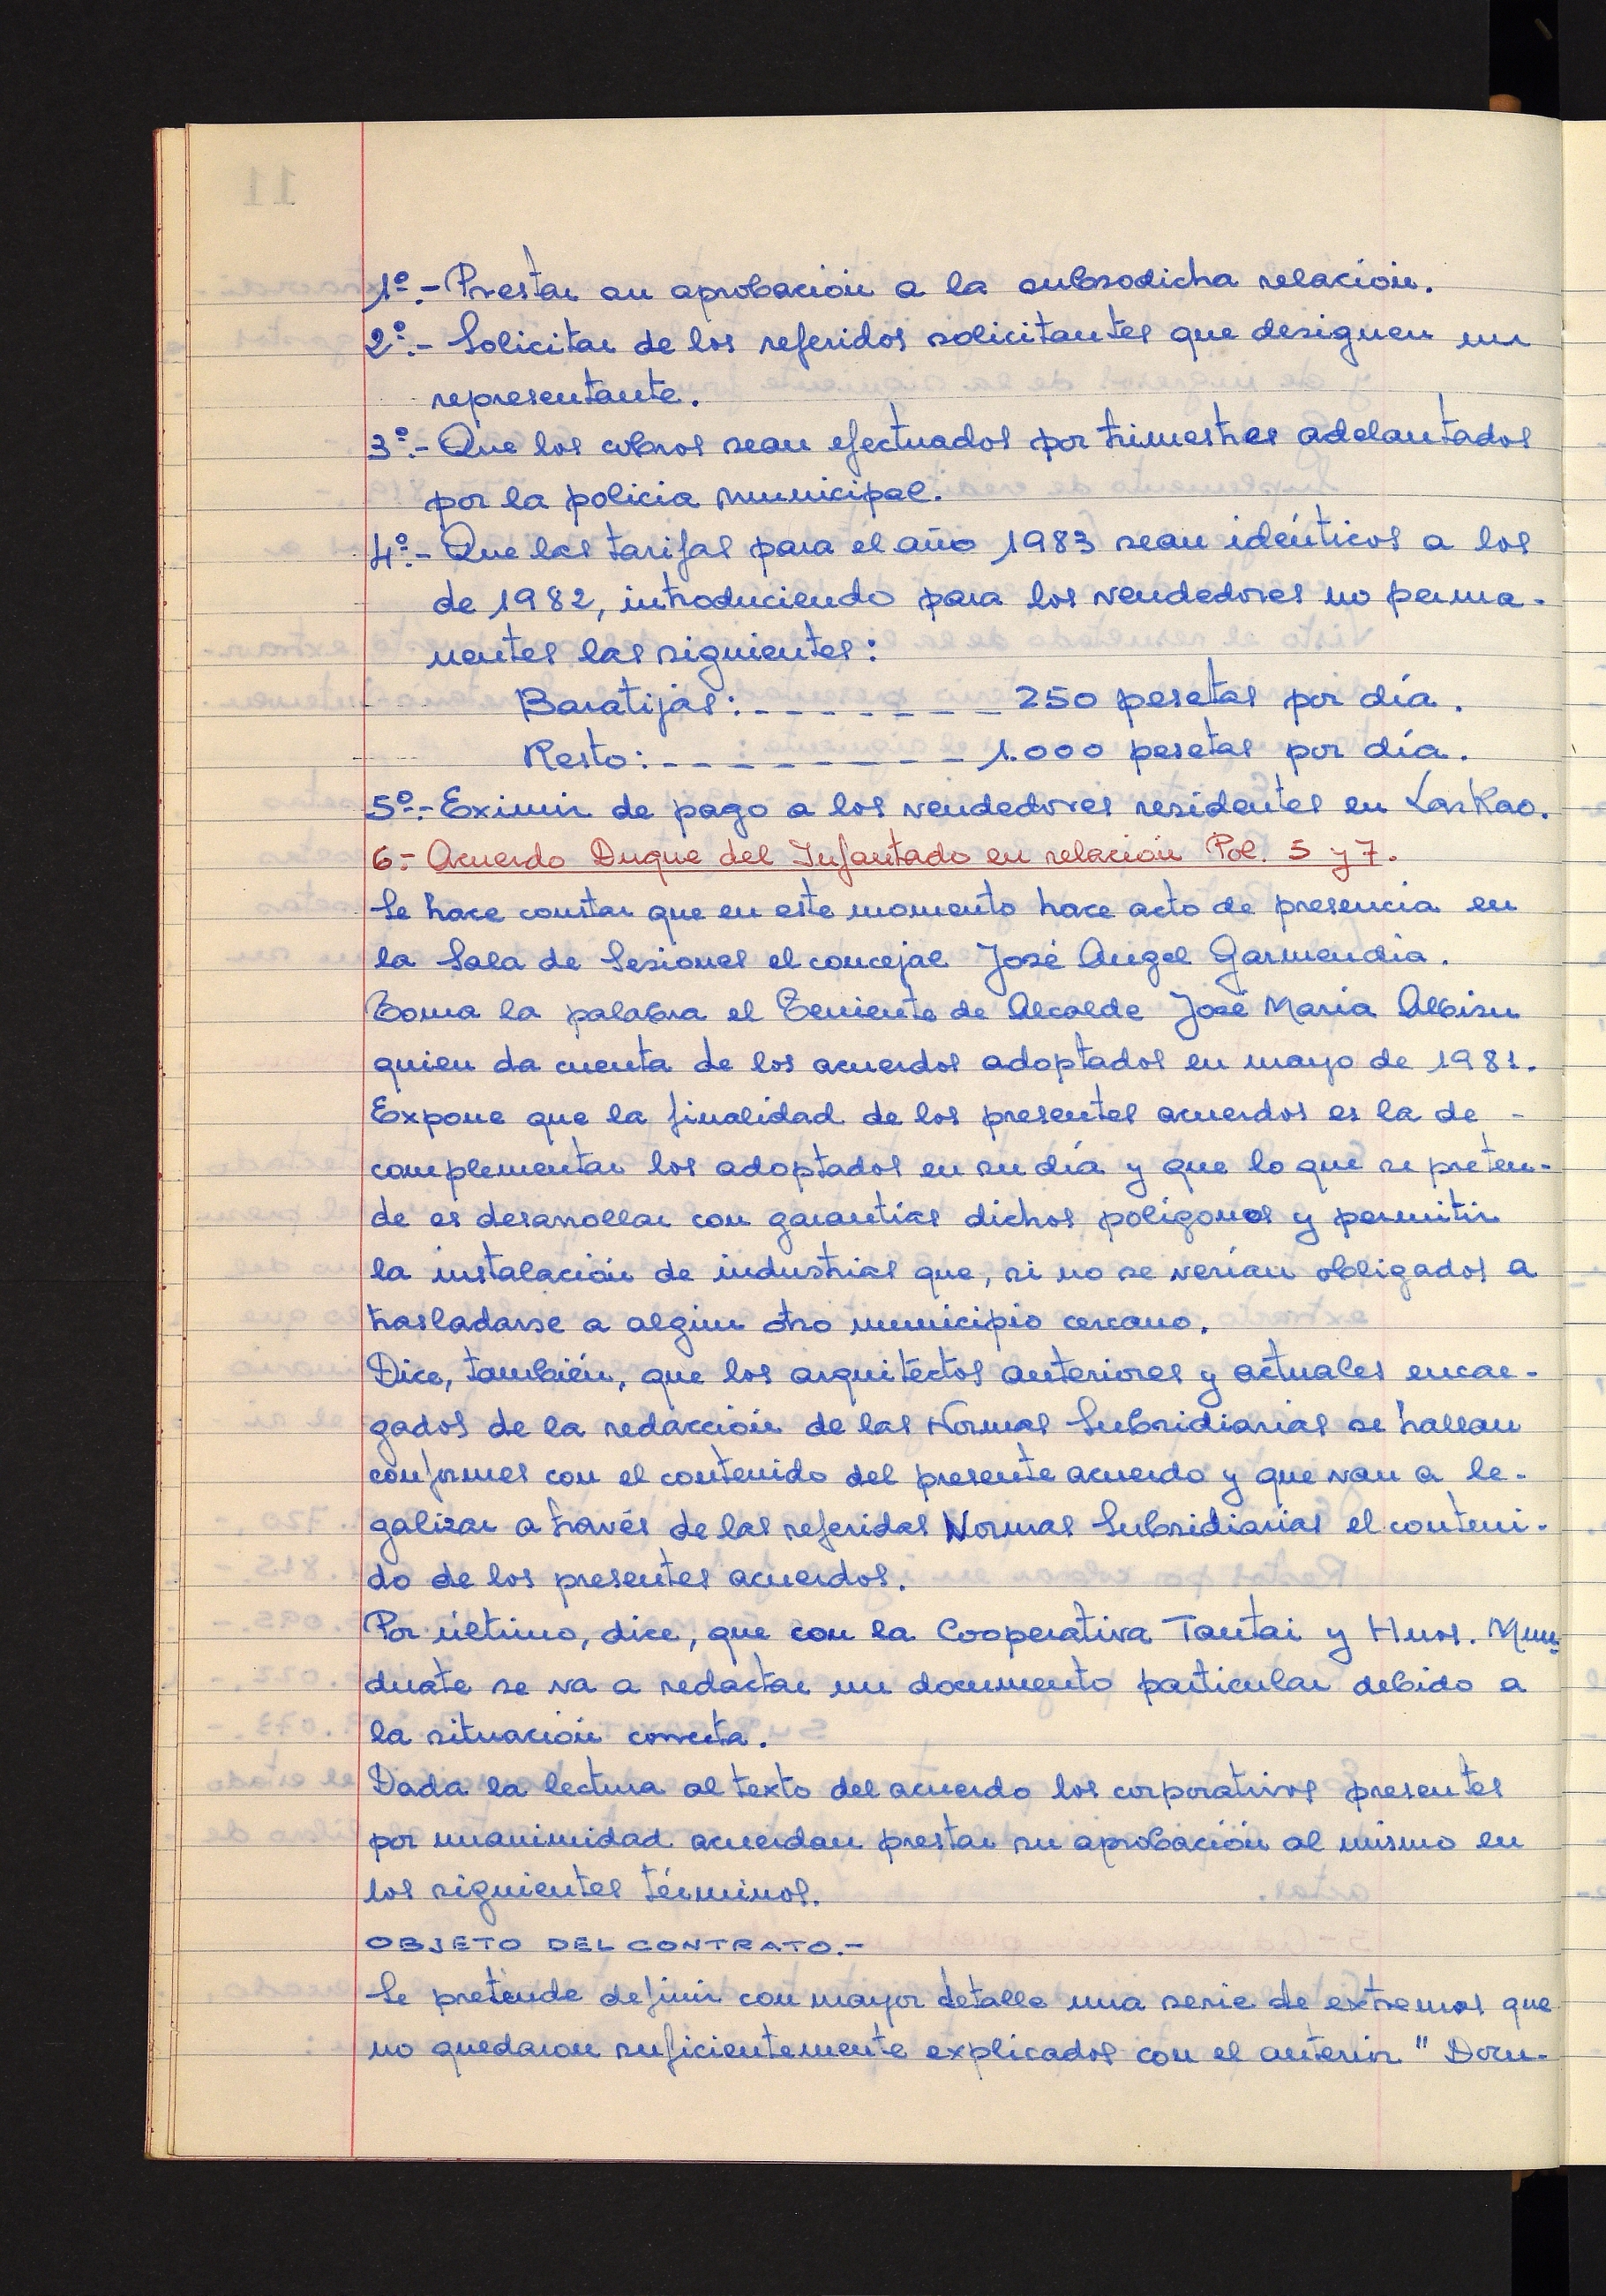 1º.- Prestar su aprobación a la subsodicha relación.
2º.- Solicitar de los referidos solicitantes que designen un
representante.
3º.- Que los cobros sean efectuados por trimestres adelantados
por la policia municipal.
4º.- Que las tarifas para el año 1983 sean idénticos a los
de 1982, introduciendo para los vendedores no perma-
nentes las siguientes:
Baratijas: - - - - - - - - 250 pesetas por día.
Resto: - - - - - - - - - 1.000 pesetas por día.
5º.- Eximir de pago a los vendedores residentes en Lazkao.
6.- Acuerdo Duque del Infantado en relación Pol. 5 y 7.
Se hace constar que en este momento hace acto de presencia en
la Sala de Sesiones el concejal José Angel Garmendia.
Toma la palabra el Teniente de Alcalde José Maria Albisu
quien da cuenta de los acuerdos adoptados en mayo de 1981.
Expone que la finalidad de los presentes acuerdos es la de -
complementar los adoptados en su día y que lo que se preten-
de es desarrollar con garantías dichos polígonos y permitir
la instalación de industrias que, si no se verían obligados a
trasladarse a algún otro municipio cercano.
Dice, también, que los arquitectos anteriores y actuales encar-
gados de la redacción de las Normas Subsidiarias se hallan
conformes con el contenido del presente acuerdo y que van a le-
galizar a través de las referidas Normas Subsidiarias el conteni-
do de los presentes acuerdos.
Por último, dice, que con la Cooperativa Tantai y Hnos. Mun-
duate se va a redactar un documento particular debido a
la situación concreta.
Dada la lectura al texto del acuerdo los corporativos presentes
por unanimidad acuerdan prestar su aprobación al mismo en
los siguientes términos.
OBJETO DEL CONTRATO.-
Se pretende definir con mayor detalle una serie de extremos que
no quedaron suficientemente explicados con el anterior "Docu-